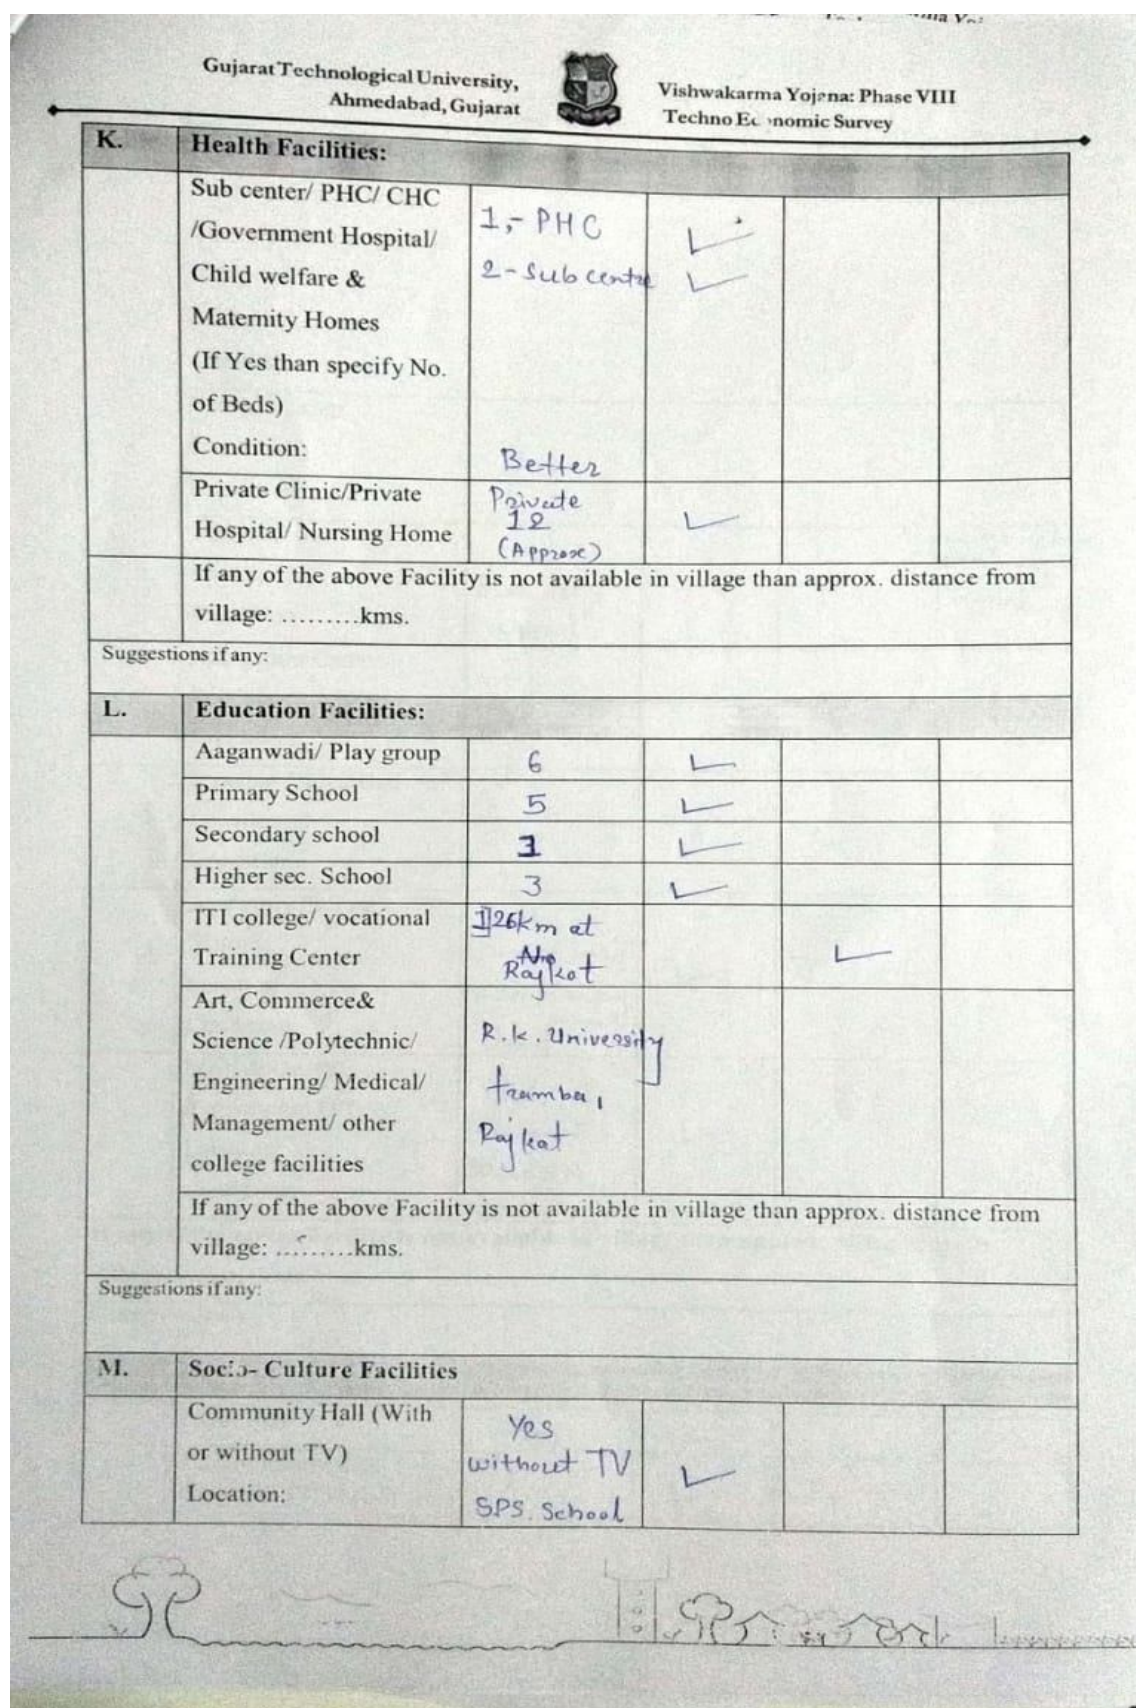 Gujarat Technological University,
Ahmedabad, Gujarat
Vishwakarma Yojana: Phase VIII
Techno Economic Survey
K. Health Facilities:
Sub center/ PHC/ CHC
/Government Hospital/
Child welfare &
Maternity Homes
(If Yes than specify No.
of Beds)
Condition:
1,- PHC
2 - Sub centre
Better
Private Clinic/Private
Hospital/ Nursing Home
Private
12
(Approx)
If any of the above Facility is not available in village than approx. distance from
village: .........kms.
Suggestions if any:
L. Education Facilities:
Aaganwadi/ Play group 6
Primary School 5
Secondary school 3
Higher sec. School 3
ITI college/ vocational
Training Center
26km at
Rajkot
Art, Commerce&
Science /Polytechnic/
Engineering/ Medical/
Management/ other
college facilities
R.K. University
tramba,
Rajkot
If any of the above Facility is not available in village than approx. distance from
village: .........kms.
Suggestions if any:
M. Socio- Culture Facilities
Community Hall (With
or without TV)
Location:
Yes
without TV
SPS School